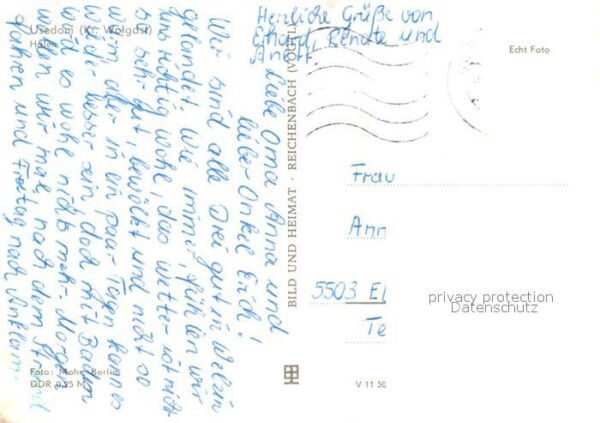 Usedom (Kr. Wolgast)
Hafen
Herzliche Grüße von
Erhard, Renate und
Anett
Echt Foto
Liebe Oma Anna und
lieber Onkel Erich!
Wir sind alle Drei gut in Welzin
gelandet. Wie immer fühlen wir
uns richtig wohl, das Wetter ist nicht
so sehr gut, bewölkt und nicht so
warm aber in ein paar Tagen kann es
wieder besser sein doch mit Baden
wird es wohl nichts mehr. Morgen
wollen wir mal nach dem Strand
fahren und Freitag nach Anklam.
BILD UND HEIMAT · REICHENBACH (VOGTL
Frau
Ann
5503 El
Te
privacy protection
Datenschutz
Foto: Mohr, Berlin
DDR 0,25 M
V 11 50